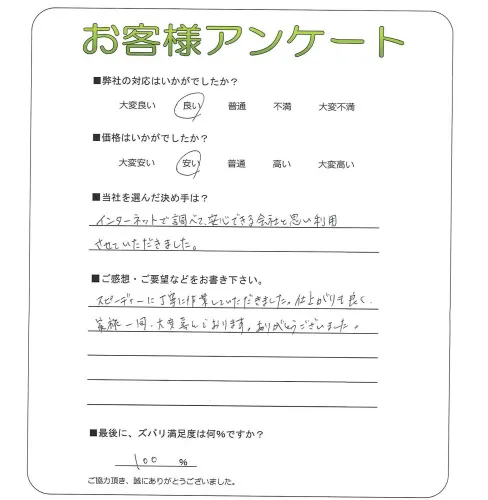 お客様アンケート
■弊社の対応はいかがでしたか？
大変良い 良い 普通 不満 大変不満
■価格はいかがでしたか？
大変安い 安い 普通 高い 大変高い
■当社を選んだ決め手は？
インターネットで調べて、安心できる会社と思い利用
させていただきました。
■ご感想・ご要望などをお書き下さい。
スピーディーに丁寧に作業していただきました。仕上がりも良く、
家族一同、大変喜んでおります。ありがとうございました。
■最後に、ズバリ満足度は何%ですか？
100 %
ご協力頂き、誠にありがとうございました。